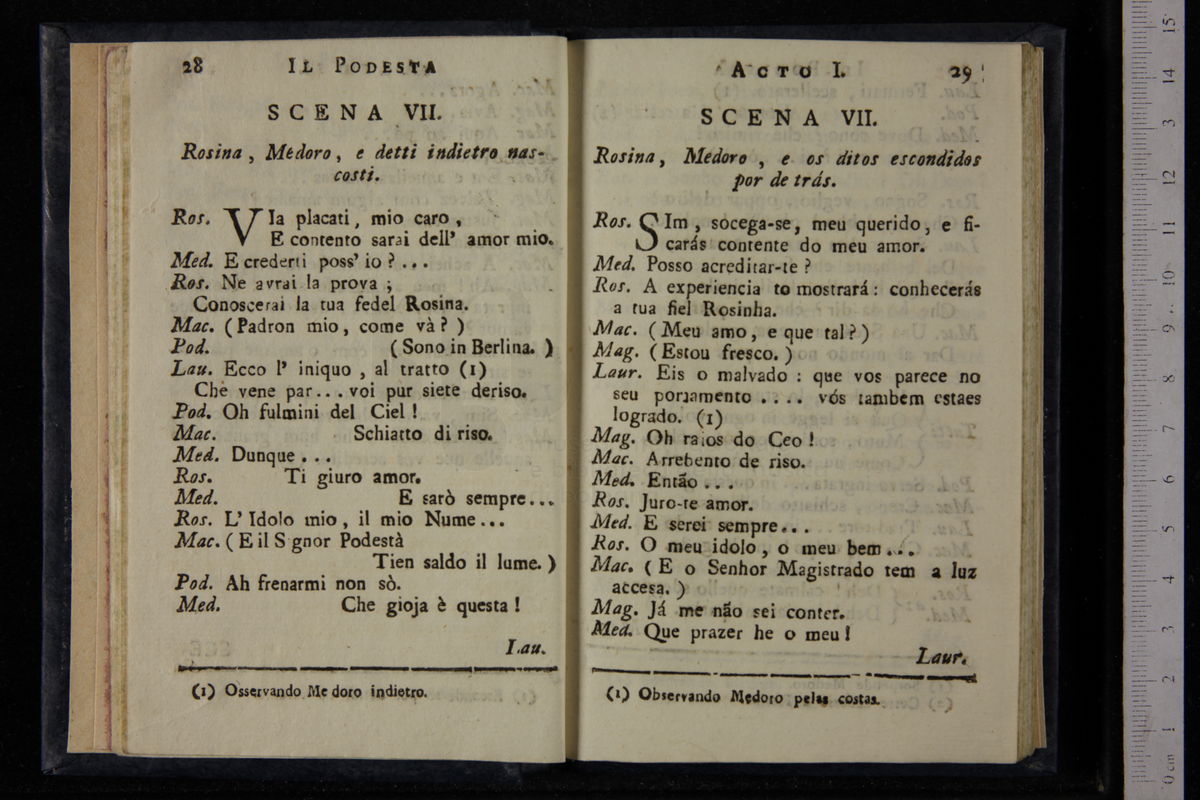 28 IL PODESTA
SCENA VII.
Rosina, Medoro, e detti indietro nas-
costi.
Ros. VIa placati, mio caro,
E contento sarai dell' amor mio.
Med. E crederti poss' io? ...
Ros. Ne avrai la prova;
Conoscerai la tua fedel Rosina.
Mac. (Padron mio, come và?)
Pod. (Sono in Berlina.)
Lau. Ecco l' iniquo, al tratto (1)
Che vene par... voi pur siete deriso.
Pod. Oh fulmini del Ciel!
Mac. Schiatto di riso.
Med. Dunque...
Ros. Ti giuro amor.
Med. E sarò sempre...
Ros. L' Idolo mio, il mio Nume...
Mac. (E il S gnor Podestà
Tien saldo il lume.)
Pod. Ah frenarmi non sò.
Med. Che gioja è questa!
Lau.
(1) Osservando Medoro indietro.
ACTO I. 29
SCENA VII.
Rosina, Medoro, e os ditos escondidos
por de trás.
Ros. SIm, socega-se, meu querido, e fi-
carás contente do meu amor.
Med. Posso acreditar-te?
Ros. A experiencia to mostrará: conhecerás
a tua fiel Rosinha.
Mac. (Meu amo, e que tal?)
Mag. (Estou fresco.)
Laur. Eis o malvado: que vos parece no
seu portamento .... vós tambem estaes
logrado. (1)
Mag. Oh raios do Ceo!
Mac. Arrebento de riso.
Med. Então...
Ros. Juro-te amor.
Med. E serei sempre...
Ros. O meu idolo, o meu bem...
Mac. (E o Senhor Magistrado tem a luz
accesa.)
Mag. Já me não sei conter.
Med. Que prazer he o meu!
Laur.
(1) Observando Medoro pelas costas.
0 cm 1 2 3 4 5 6 7 8 9 10 11 12 13 14 15